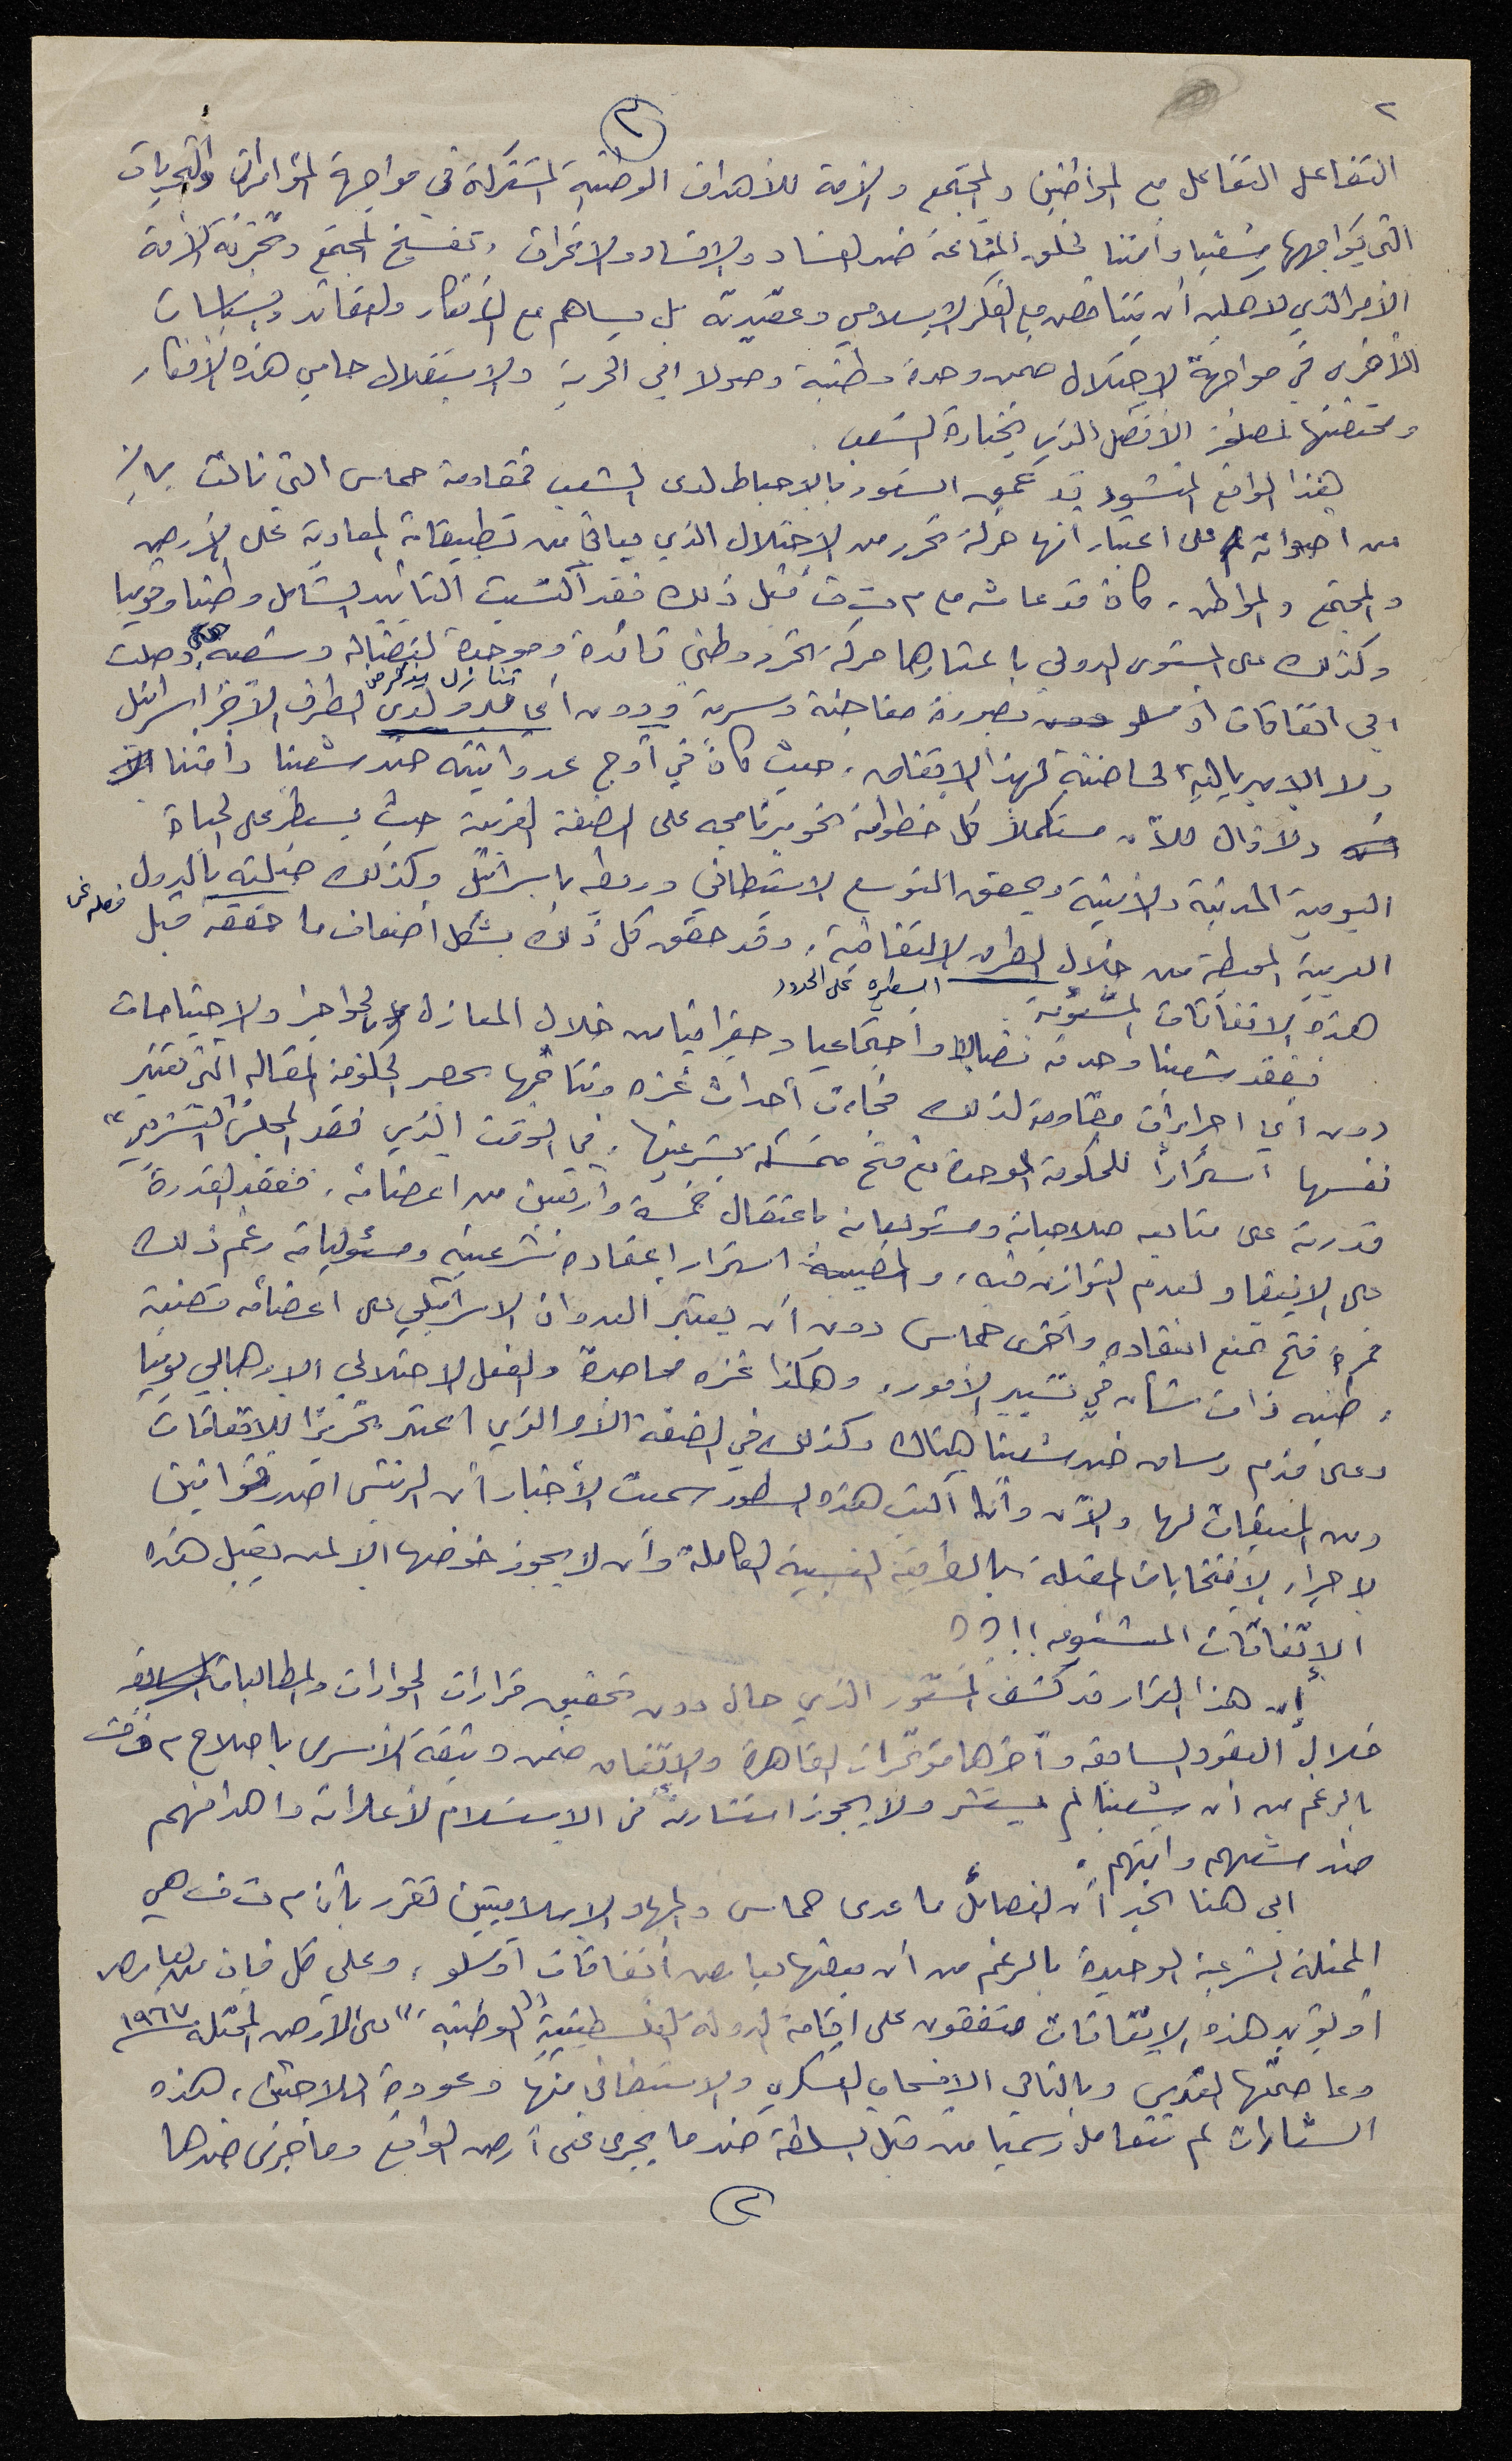 ٢
٢
التفاعل التفاعل مع المواطنين والمجتمع والأمة للأهداف الوطنية المشتركة في مواجهة المؤامرات والتحديات
التي يواجهها شعبنا وأمتنا لخلق المناعة ضد الفساد والافساد والانحراف، تفسيخ المجتمع وتجزئة الأمة
الأمر الذي لا يمكن أن يتناقض مع الفكر الإسلامي وعقيدته بل يساهم مع الأفكار والعقائد والسياسات
الأخرى في مواجهة الاحتلال ضمن وحدة وطنية وصولا الى الحرية والاستقلال حامي هذه الأفكار
ومحتضنها لصالح الأفضل الذي يختاره الشعب
هذا الواقع المنشود قد عمق الشعور بالاحباط لدى الشعب فمقاومة حماس التي نالت
من اصواته على اعتبار أنها حركة تحرر من الاحتلال الذي يعاني من تطبيقاته المعادية على الأرض
والمجتمع والمواطن، كان قد عاشه مع م ت ف قبل ذلك فقد اكتسبت التأييد الشامل وطنيا وقوميا
وكذلك على المستوى الدولي باعتبارها حركة تحرر وطني قائدة وموحدة لنضاله وشعبه، وصلت
الى اتفاقات أوسلو بصورة مفاجئة وسرية ودون أي تنازل يذكر من لدى الطرف الآخر اسرائيل
ولا الامبريالية الحاضنة لهذا الاتفاق، حيث كان في أوج عدوانيته ضد شعبنا وأمتنا
ولا زال للآن مستكملاً كل خطواته نحو برنامجه على الضفة الغربية حيث يسيطر على الحياة
اليومية المدنية والأمنية ويحقق التوسع الاستيطاني وربطه باسرائيل وكذلك صلته بالدول
العربية المحيطة من خلال الطرق الالتفافية، وقد حقق كل ذلك بشكل أضعاف ما حققه قبل
هذه الاتفاقات المشؤومة
السيطرة على الحدود
ففقد شعبنا وحدته نضاليا واجتماعيا وجغرافيا من خلال المعازل والحواجز والاجتياحات
دون أي اجراءات مقاومة لذلك فجاءت أحداث غزه ونتائجها بحصر الحكومة المقاله التي تعتبر
نفسها استمراراً للحكومة الموحدة مع فتح متمسكة بشرعيتها، في الوقت الذي فقد المجلس التشريعي
قدرته على متابعه صلاحياته ومسئولياته باعتقال خمسة وأربعين من اعضائه، ففقد القدرة
على الانعقاد لعدم التوازن فيه، والمصيبة استمرار اعتماده شرعيته ومسئولياته رغم ذلك
فمرة فتح تمنع انعقاده وأخرى حماس دون أن يعتبر العدوان الاسرائيلي على اعضائه قضية
وطنيه ذات شأن في تسيير الأمور، وهكذا غزه محاصرة والفعل الاحتلالي الارهابي يوميا
وعلى قدم وساق ضد شعبنا هناك وكذلك في الضفة الأمر الذي اعتبر تحريرا للاتفاقات
ومن التبعيات لها والآن وأنا أكتب هذه السطور سمعت الأخبار أن الرئيس أصدر قوانين
لاجراء الانتخابات المقبلة بالطريقة النسبية الكاملة وأن لا يجوز خوضها الا لمن يقبل هذه
الاتفاقات المشئومه !!؟؟
إن هذا القرار قد كشف المستور الذي حال دون تحقيق قرارات الحوارات والمطالبات
خلال العقود السابقة وآخرها مؤتمرات القاهرة والاتفاق ضمن وثيقة الأسرى باصلاح م ت ف
بالرغم من أن شعبنا لم يستشر ولا يجوز استشارته في الاستسلام لأعدائه وأهدافهم
ضد شعبهم وأمتهم.
الى هنا نجد أن الفصائل ما عدى حماس والجهاد الاسلاميتين تقرر بأن م ت ف هي
الممثلة الشرعية الوحيدة بالرغم من أن بعضها يعارض اتفاقات أوسلو، وعلى كل فان من يعارض
أو يؤيد هذه الاتفاقات متفقون على اقامة الدولة الفلسطينية "الوطنية" على الأرض المحتلة ١٩٦٧
وعاصمتها القدس وبالتالي الانسحاب العسكري والاستيطاني منها وعودة اللاجئين، هذه
الشعارات لم تتعامل رسميا من قبل السلطة ضد ما يجري على أرض الواقع وما جرى ضدها
٢